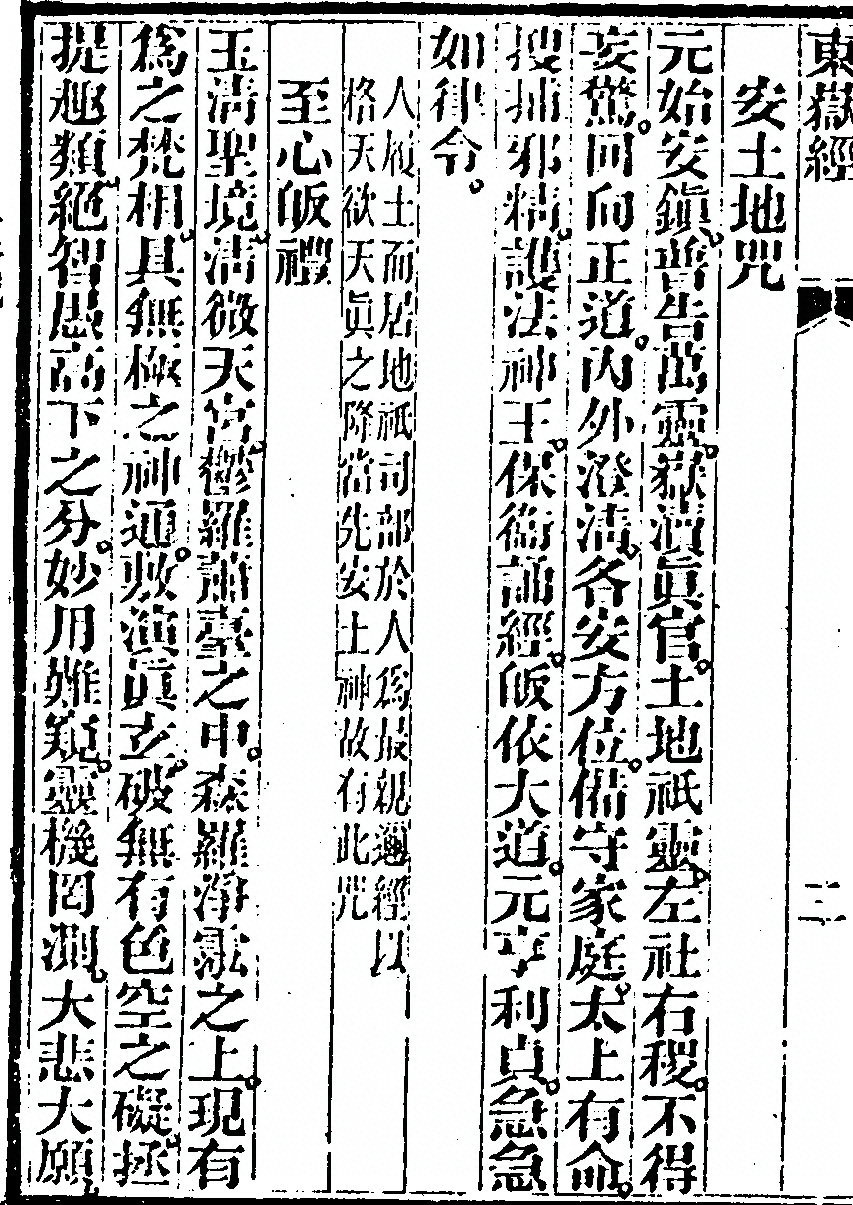 東嶽經
三
安土地咒
元始安鎭。普告萬靈。嶽瀆眞官。土地祇靈。左社右稷。不得
妄驚。回向正道。內外澄清。各安方位。備守家庭。太上有命。
搜捕邪精。護法神王。保衞誦經。皈依大道。元亨利貞。急急
如律令。
人履土而居地祇司部於人爲最親邇經以
格天欲天眞之降當先安土神故有此咒
至心皈禮
玉淸聖境。淸微天宮。鬱羅蕭臺之中。森羅淨泓之上。現有
爲之梵相。具無極之神通。敷演眞玄。破無有色空之礙。拯
提趣類。絕智愚高下之分。妙用難窺。靈機罔測。大悲大願。